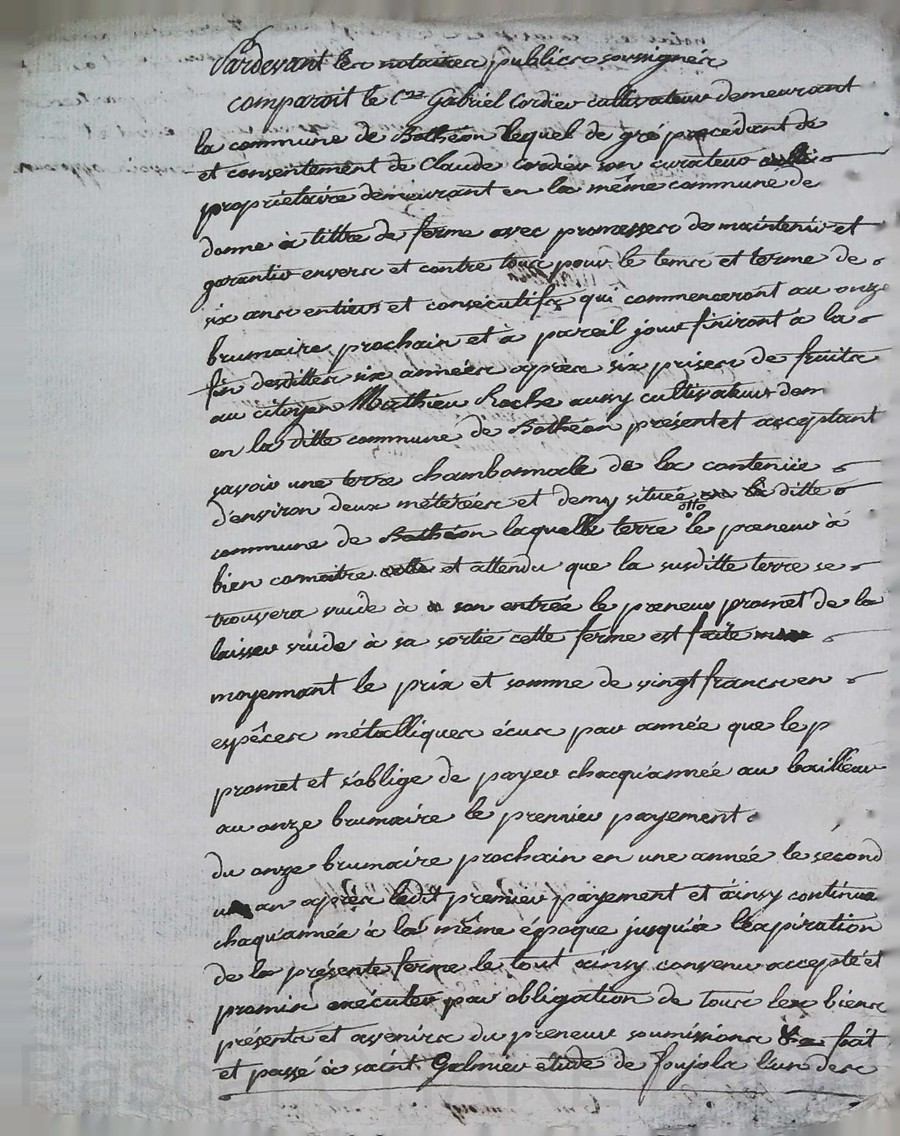 Pardevant les notaires publics soussignés
comparoit le C.en Gabriel Cordier cultivateur demeurant
la commune de Bothéon lequel de gré procédant de
et consentement de Claude Cordier son curateur
propriétaire demeurant en la même commune de
donne à tittre de ferme avec promesses de maintenir et
garantir envers et contre tous pour le tems et terme de
six ans entiers et consecutifs qui commenceront au onze
brumaire prochain et à pareil jour finiront à la
fin desdittes six années après six prises de fruits
au citoyen Mathieu Roche aussy cultivateur dem
en la ditte commune de Bothéon présent et acceptant
savoir une terre chambonnale de la contenüe
d'environ deux métérées et demy située la ditte
commune de Bothéon laquelle terre le preneur à
bien connoitre et attendu que la susditte terre se
trouvera vuide à son entrée le preneur promet de la
laisser vuide à sa sortie cette ferme est faite
moyennant le prix et somme de vingt francs en
espèces métalliques écus par année que le p
promet et s'oblige de payer chacq'année au bailleur
au onze brumaire le premier payement
du onze brumaire prochain en une année le second
un an après ledit premier payement et ainsy continue
chaqu'année à la même époque jusqu'à l'expiration
de la présente ferme le tout ainsy convenu accepté et
promis exécuter par obligation de tous les biens
présents et avenirs du preneur soumissions fait
et passé à saint Galmier étude de Joujols l'un des